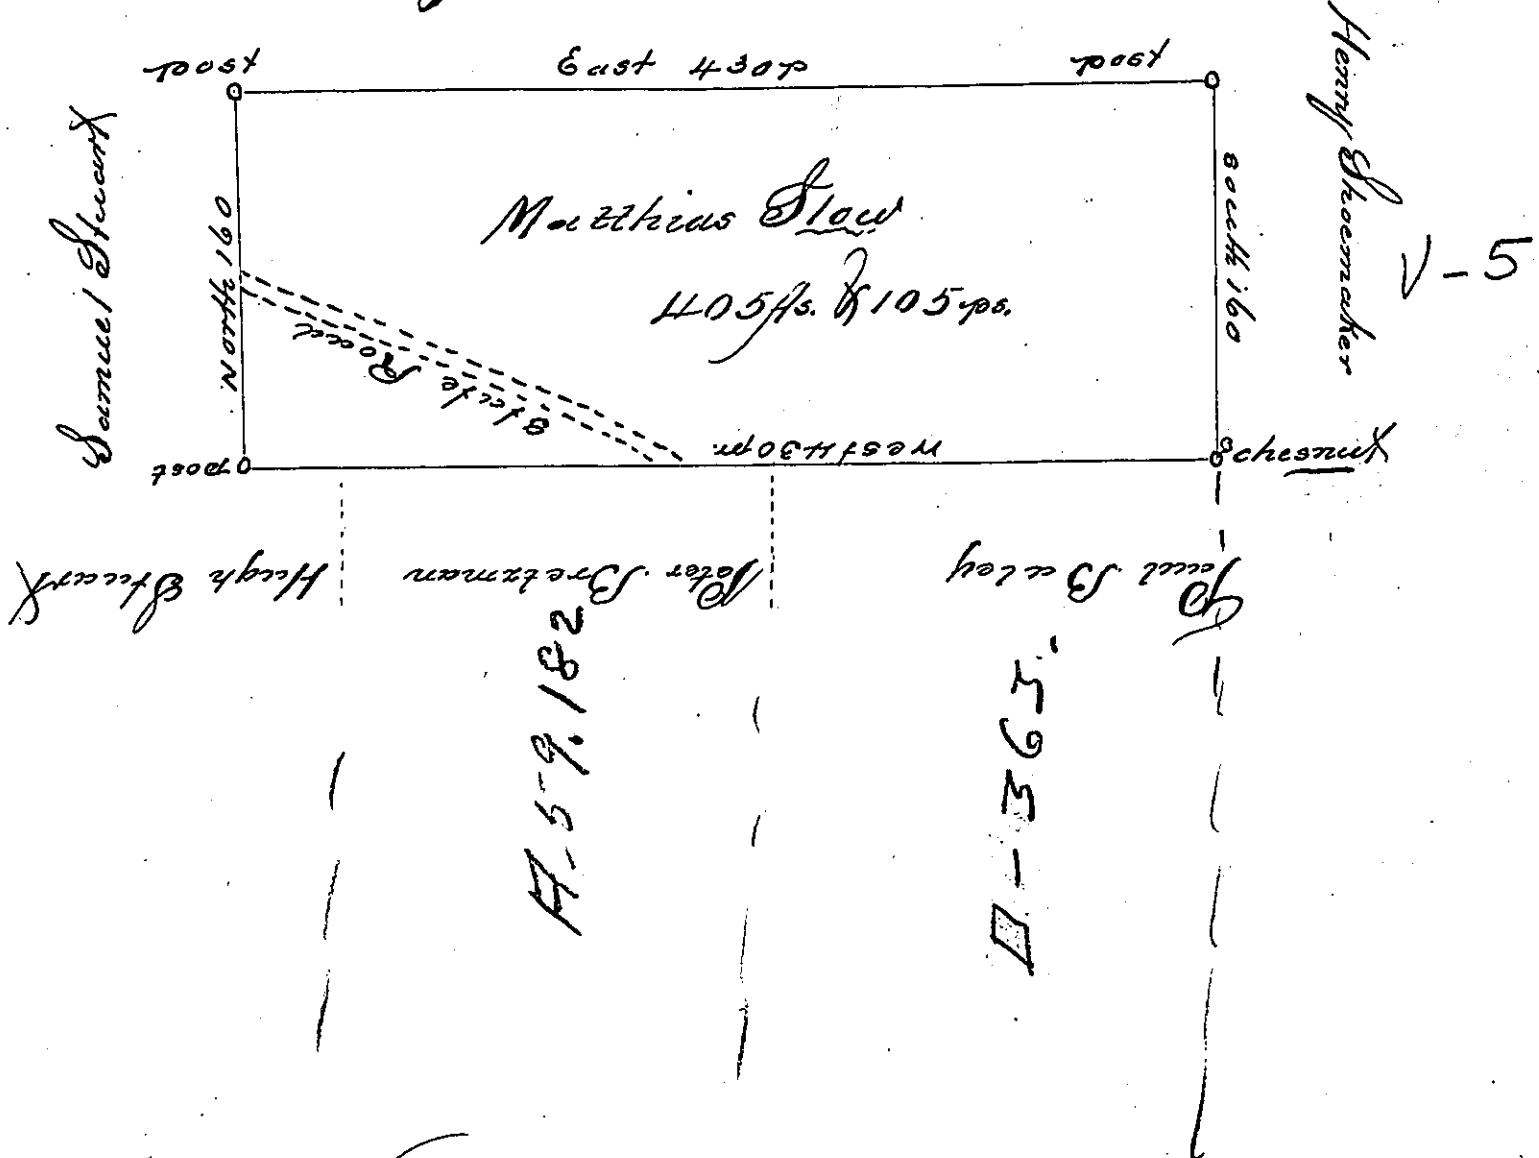 post
East 430p
post
Henry Shoemaker
Samuel Stuart
North 160
Matthias Slow
405 As. & 105 ps.
south 160
V-5
State Road
post
west 430 pr.
chesnut
Hugh Stuart
Peter Bretzman
Paul Baley
A-59.182
D-365.